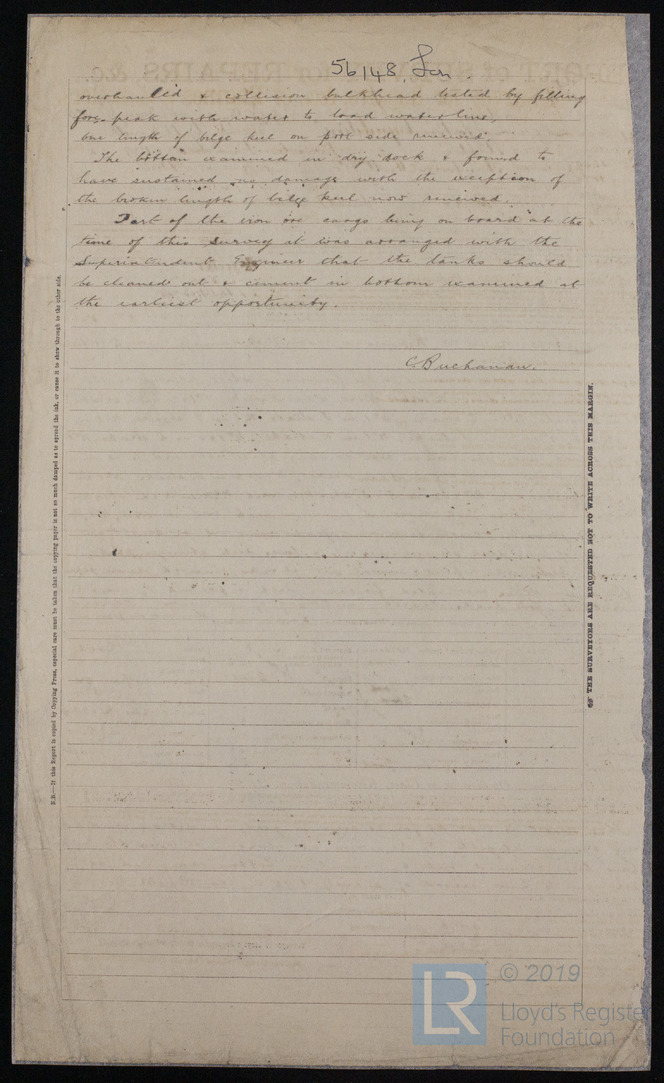 56148 Lon.
overhauled & collision bulkhead tested by filling
fore peak with water to load water line,
one length of bilge keel on port side renewed.
The bottom examined in dry dock & found to
have sustained no damage with the exception of
the broken length of bilge keel now renewed.
Part of the iron ore cargo being on board at the
time of this survey it was arranged with the
Superintendent Engineer that the tanks should
be cleaned out & cement in bottom examined at
the earliest opportunity.
C Buchanan.
N.B.—If this Report is copied by Copying Press, especial care must be taken that the copying paper is not so much damped as to spread the ink, or cause it to show through to the other side.
THE SURVEYORS ARE REQUESTED NOT TO WRITE ACROSS THIS MARGIN.
LR
© 2019
Lloyd's Register
Foundation